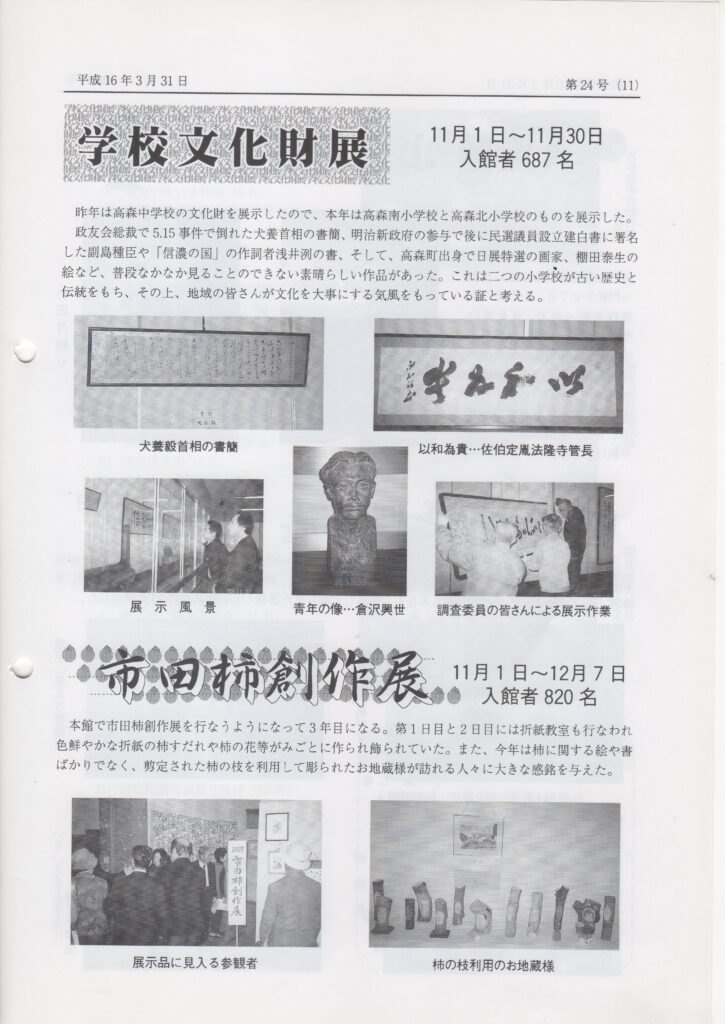 平成16年3月31日
第24号（11）
学校文化財展
11月1日～11月30日
入館者687名
昨年は高森中学校の文化財を展示したので、本年は高森南小学校と高森北小学校のものを展示した。
政友会総裁で5.15事件で倒れた犬養首相の書簡、明治新政府の参与で後に民選議員設立建白書に署名
した副島種臣や「信濃の国」の作詞者浅井洌の書、そして、高森町出身で日展特選の画家、棚田泰生の
絵など、普段なかなか見ることのできない素晴らしい作品があった。これは二つの小学校が古い歴史と
伝統をもち、その上、地域の皆さんが文化を大事にする気風をもっている証と考える。
犬養毅首相の書簡
以和為貴
以和為貴…佐伯定胤法隆寺管長
展示風景
青年の像…倉沢興世
調査委員の皆さんによる展示作業
市田柿創作展
11月1日～12月7日
入館者820名
本館で市田柿創作展を行なうようになって3年目になる。第1日目と2日目には折紙教室も行なわれ
色鮮やかな折紙の柿すだれや柿の花等がみごとに作られ飾られていた。また、今年は柿に関する絵や書
ばかりでなく、剪定された柿の枝を利用して彫られたお地蔵様が訪れる人々に大きな感銘を与えた。
市田柿創作展
展示品に見入る参観者
柿の枝利用のお地蔵様